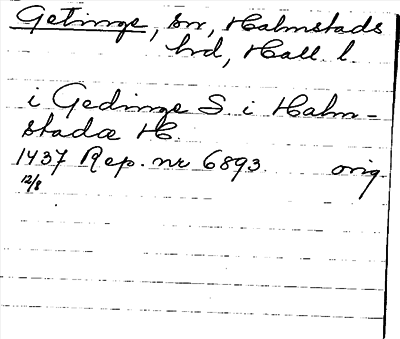 Getinge, sn, Halmstads
hrd, Hall. l.
i Gedinge S. i Halm-
stadæ H.
1437 Rep. nr 6893. orig.
12/8